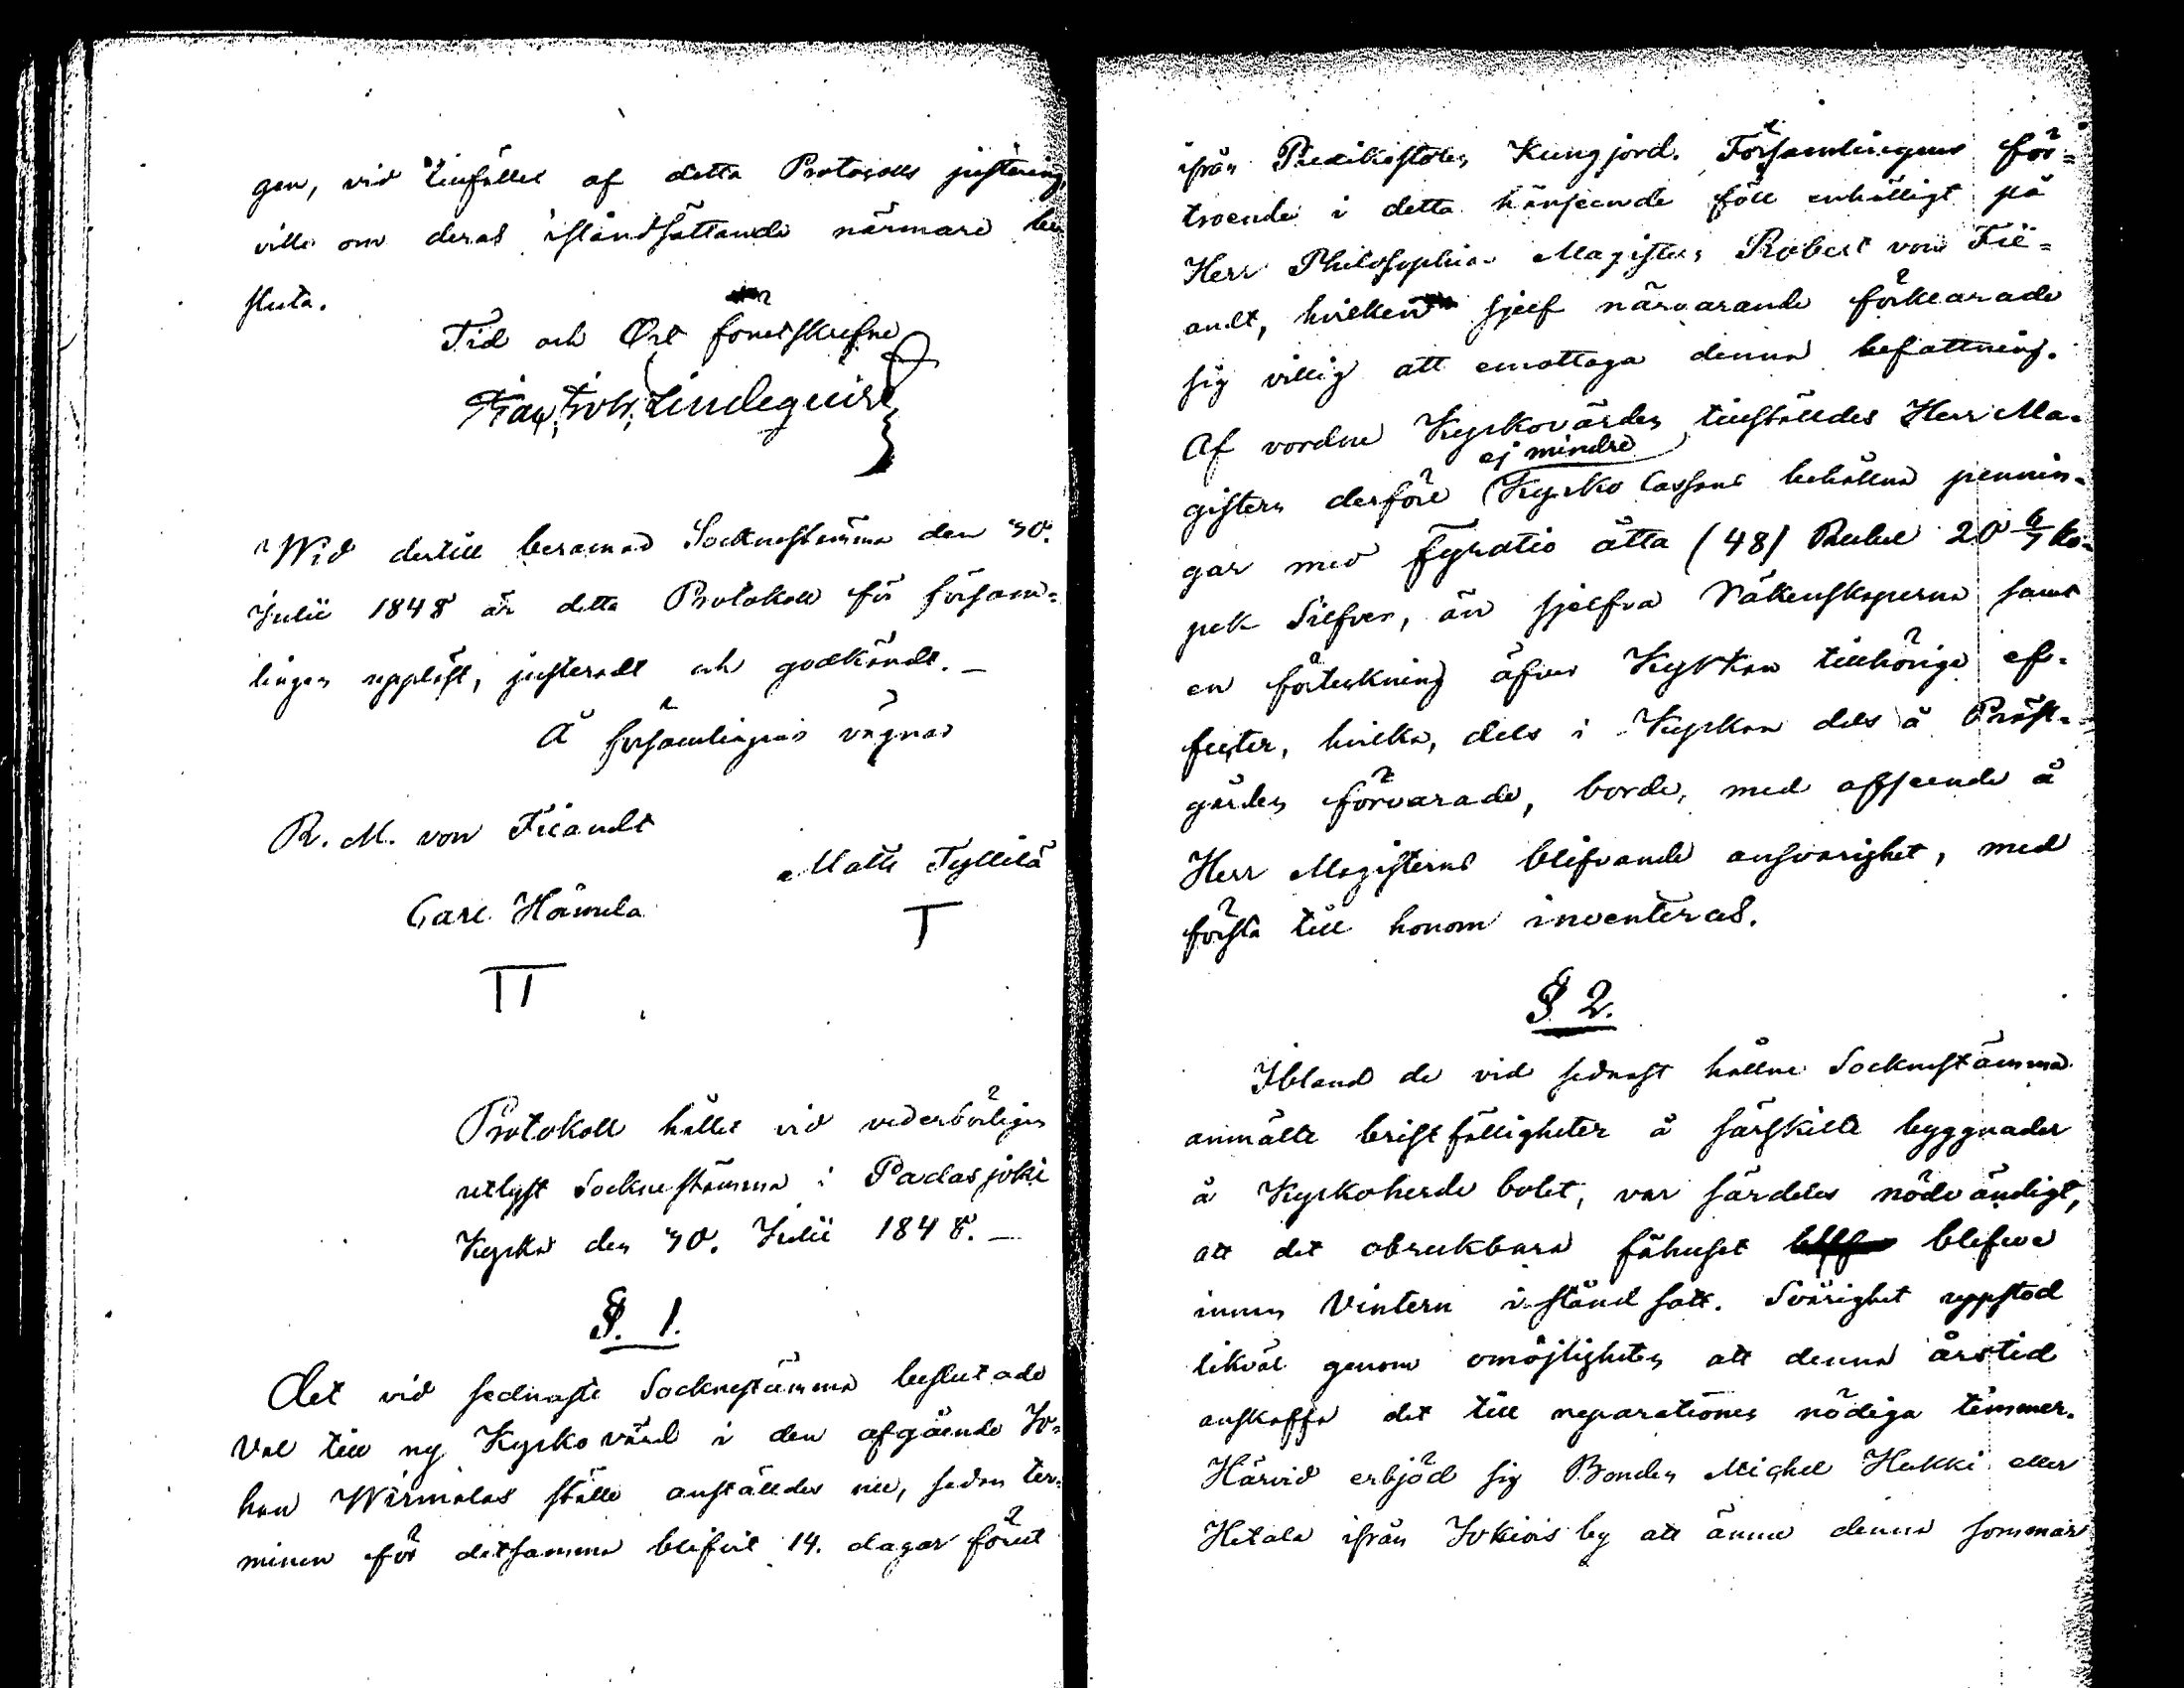 gen, vid tillfället af detta Protocolls justering,
ville om deras iståndsättande närmare be-
sluta.
Tid och Ort förutskrefne
Lindequist
Wid dertill beramad Socknestämma den 30.
Julii 1848 är detta Protokoll för försam=
lingen uppläst, justeradt och godkändt. —
Å församlingens vägnar
R. M. von Fieandt
Matts Tyllilä
Carl Hämela
T
TT
Protokoll hållet vid vederbörligen
utlyst Sockne stämma i Padasjoki
Kyrka den 30. Julii 1848. —
§. 1.
Det vid sednaste Socknestämma beslutade
Val till ny Kyrko värd i den afgående Jo=
han Wirmalas ställe anställdes nu, sedan ter=
minen för detsamma blifvit 14. dagar förut
ifrån Predikstolen Kungjord. Församlingens för=
troende i detta hänseende föll enhälligt på
Herr Philosophiæ Magistern Robert von Fie=
andt, hvilken sjelf närvarande förklarade
sig villig att emottaga denna befattning.
Af vordne Kyrkovärden tillställdes Herr Ma-
ej mindre
gistern derföre Kyrko Cassans behållna pennin-
gar med fyratio åtta (48) Rubel 20 6/7 ko-
pek Silfver, än sjelfva Räkenskaperna samt
en förteckning öfver Kyrkan tillhöriga ef-
fecter, hvilka, dels i Kyrkan dels å Präst-
gården förvarade, borde, med afseende å
Herr Magisterns blifvande ansvarighet, med
första till honom inventeras.
§ 2.
Ibland de vid sednast hållne Socknestämma
anmälte bristfälligheter å särskilte byggnader
å Kyrkoherde bolet, var särdeles nödvändigt,
att det obrukbara fähuset blefve
innan Vintern i stånd satt. Svårighet uppstod
likväl genom omöjligheten att denna årstid
anskaffa det till reparationen nödiga timmer.
Härvid erbjöd sig Bonden Michel Hukki eller
Hetala ifrån Jokiois by att ännu denna sommar